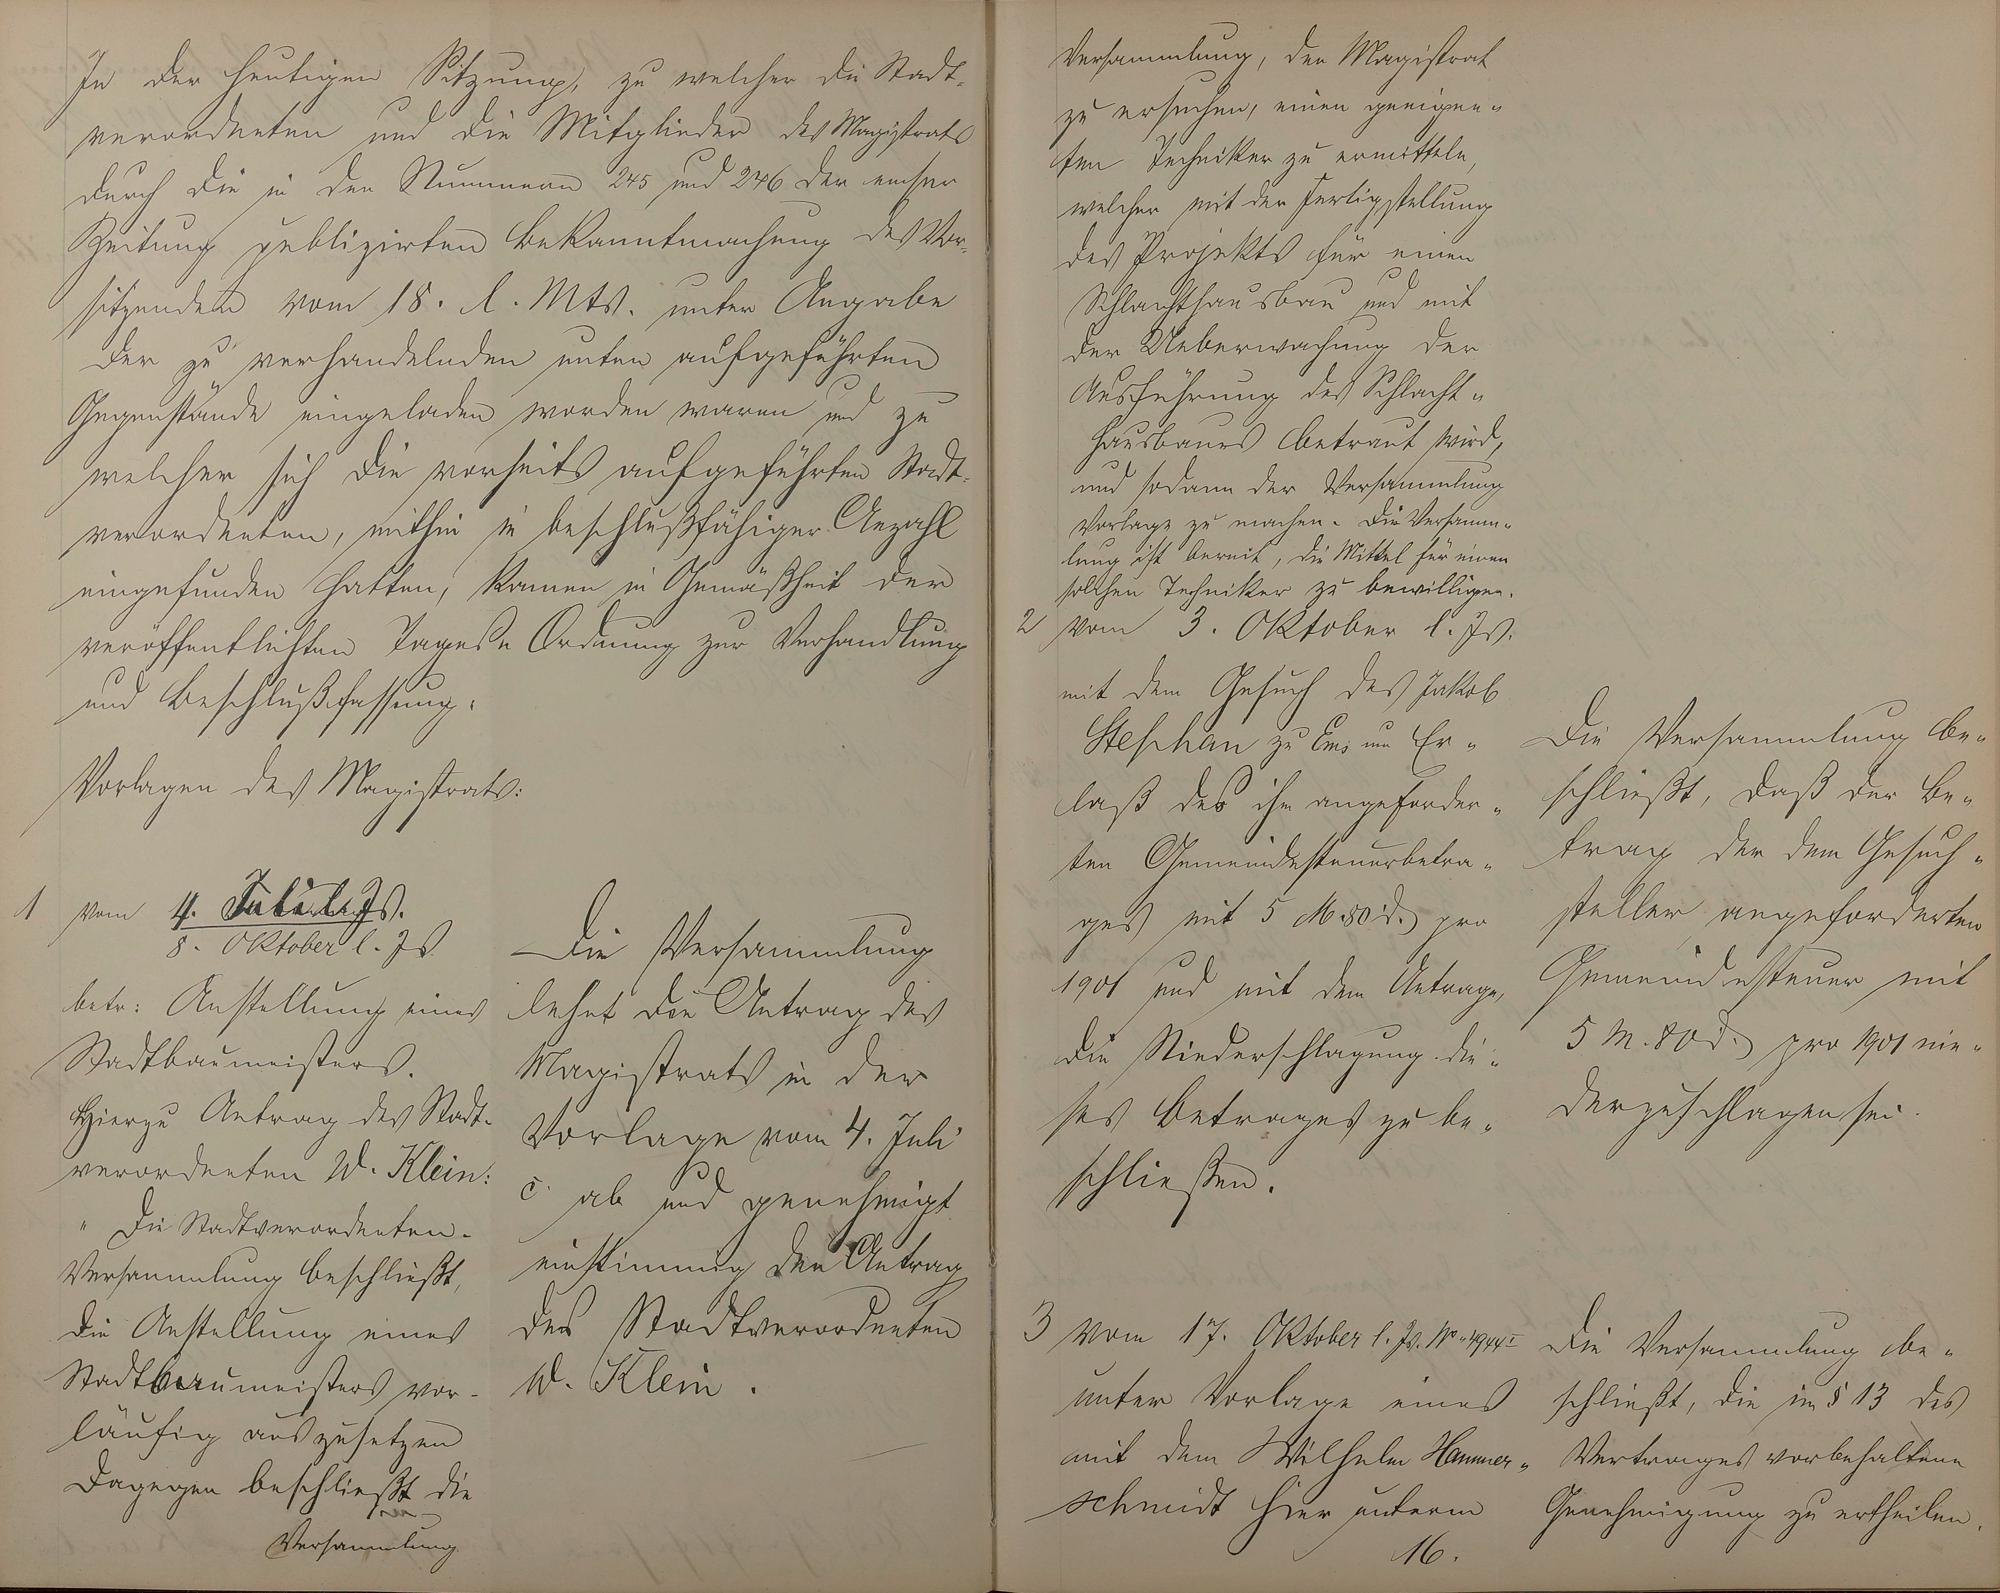 In der heutigen Sitzung, zu welcher die Stadt-
verordneten und die Mitglieder des Magistrats
durch die in den Nummern 245 und 246 der emser
Zeitung publizirten Bekanntmachung des Vor-
sitzenden vom 18. l. Mts. unter Angabe
der zu verhandelnden unten aufgeführten
Gegenstände eingeladen worden waren und zu
welcher sich die vorseits aufgeführten Stadt-
verordneten, mithin in beschlußfähiger Anzahl
eingefunden hatten, kamen in Gemäßheit der
veröffentlichten Tages-Ordnung zur Verhandlung
und Beschlußfassung.
Vorlagen des Magistrats:
1 vom 4. Juli l. Js.
8. Oktober l. Js
betr: Anstellung eines
Stadtbaumeisters.
Hierzu Antrag des Stadt-
verordneten W. Klein:
" Die Stadtverordneten-
Versammlung beschließt,
die Anstellung eines
Stadtbaumeisters vor-
läufig auszusetzen
Dagegen beschließt die
Versammlung
Die Versammlung
lehnt den Antrag des
Magistrats in der
Vorlage vom 4. Juli
c. ab und genehmigt
einstimmig den Antrag
des Stadtverordneten
W. Klein.
Versammlung, den Magistrat
zu ersuchen, einen geeigne-
ten Techniker zu ermitteln,
welcher mit der Fertigstellung
des Projekts für einen
Schlachthausbau und mit
der Ueberwachung der
Ausführung des Schlacht-
hausbaues betraut wird,
und sodann der Versammlung
Vorlage zu machen. Die Versamm-
lung ist bereit, die Mittel für einen
solchen Techniker zu bewilligen.
2 vom 3. Oktober l. Js.
mit dem Gesuch des Jakob
Stephan zu Ems um Er-
laß des ihm angeforder-
ten Gemeindesteuerbetra-
ges mit 5 M. 80 d. pro
1901 und mit dem Antrage,
die Niederschlagung die-
ses Betrages zu be-
schließen.
Die Versammlung be-
schließt, daß der Be-
trag der dem Gesuch-
steller angeforderten
Gemeindesteuer mit
5 M. 80 d. pro 1901 nie-
derzuschlagen sei.
3 vom 17. Oktober l. Js. No. 4944 I
unter Vorlage eines
mit dem Wilhelm Hammer-
schmidt hier unterm
16.
Die Versammlung be-
schließt, die im § 13 des
Vertrages vorbehaltene
Genehmigung zu ertheilen.